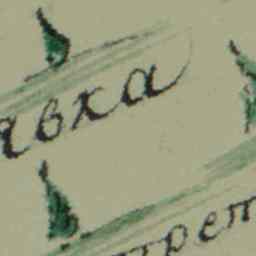 авка
трет